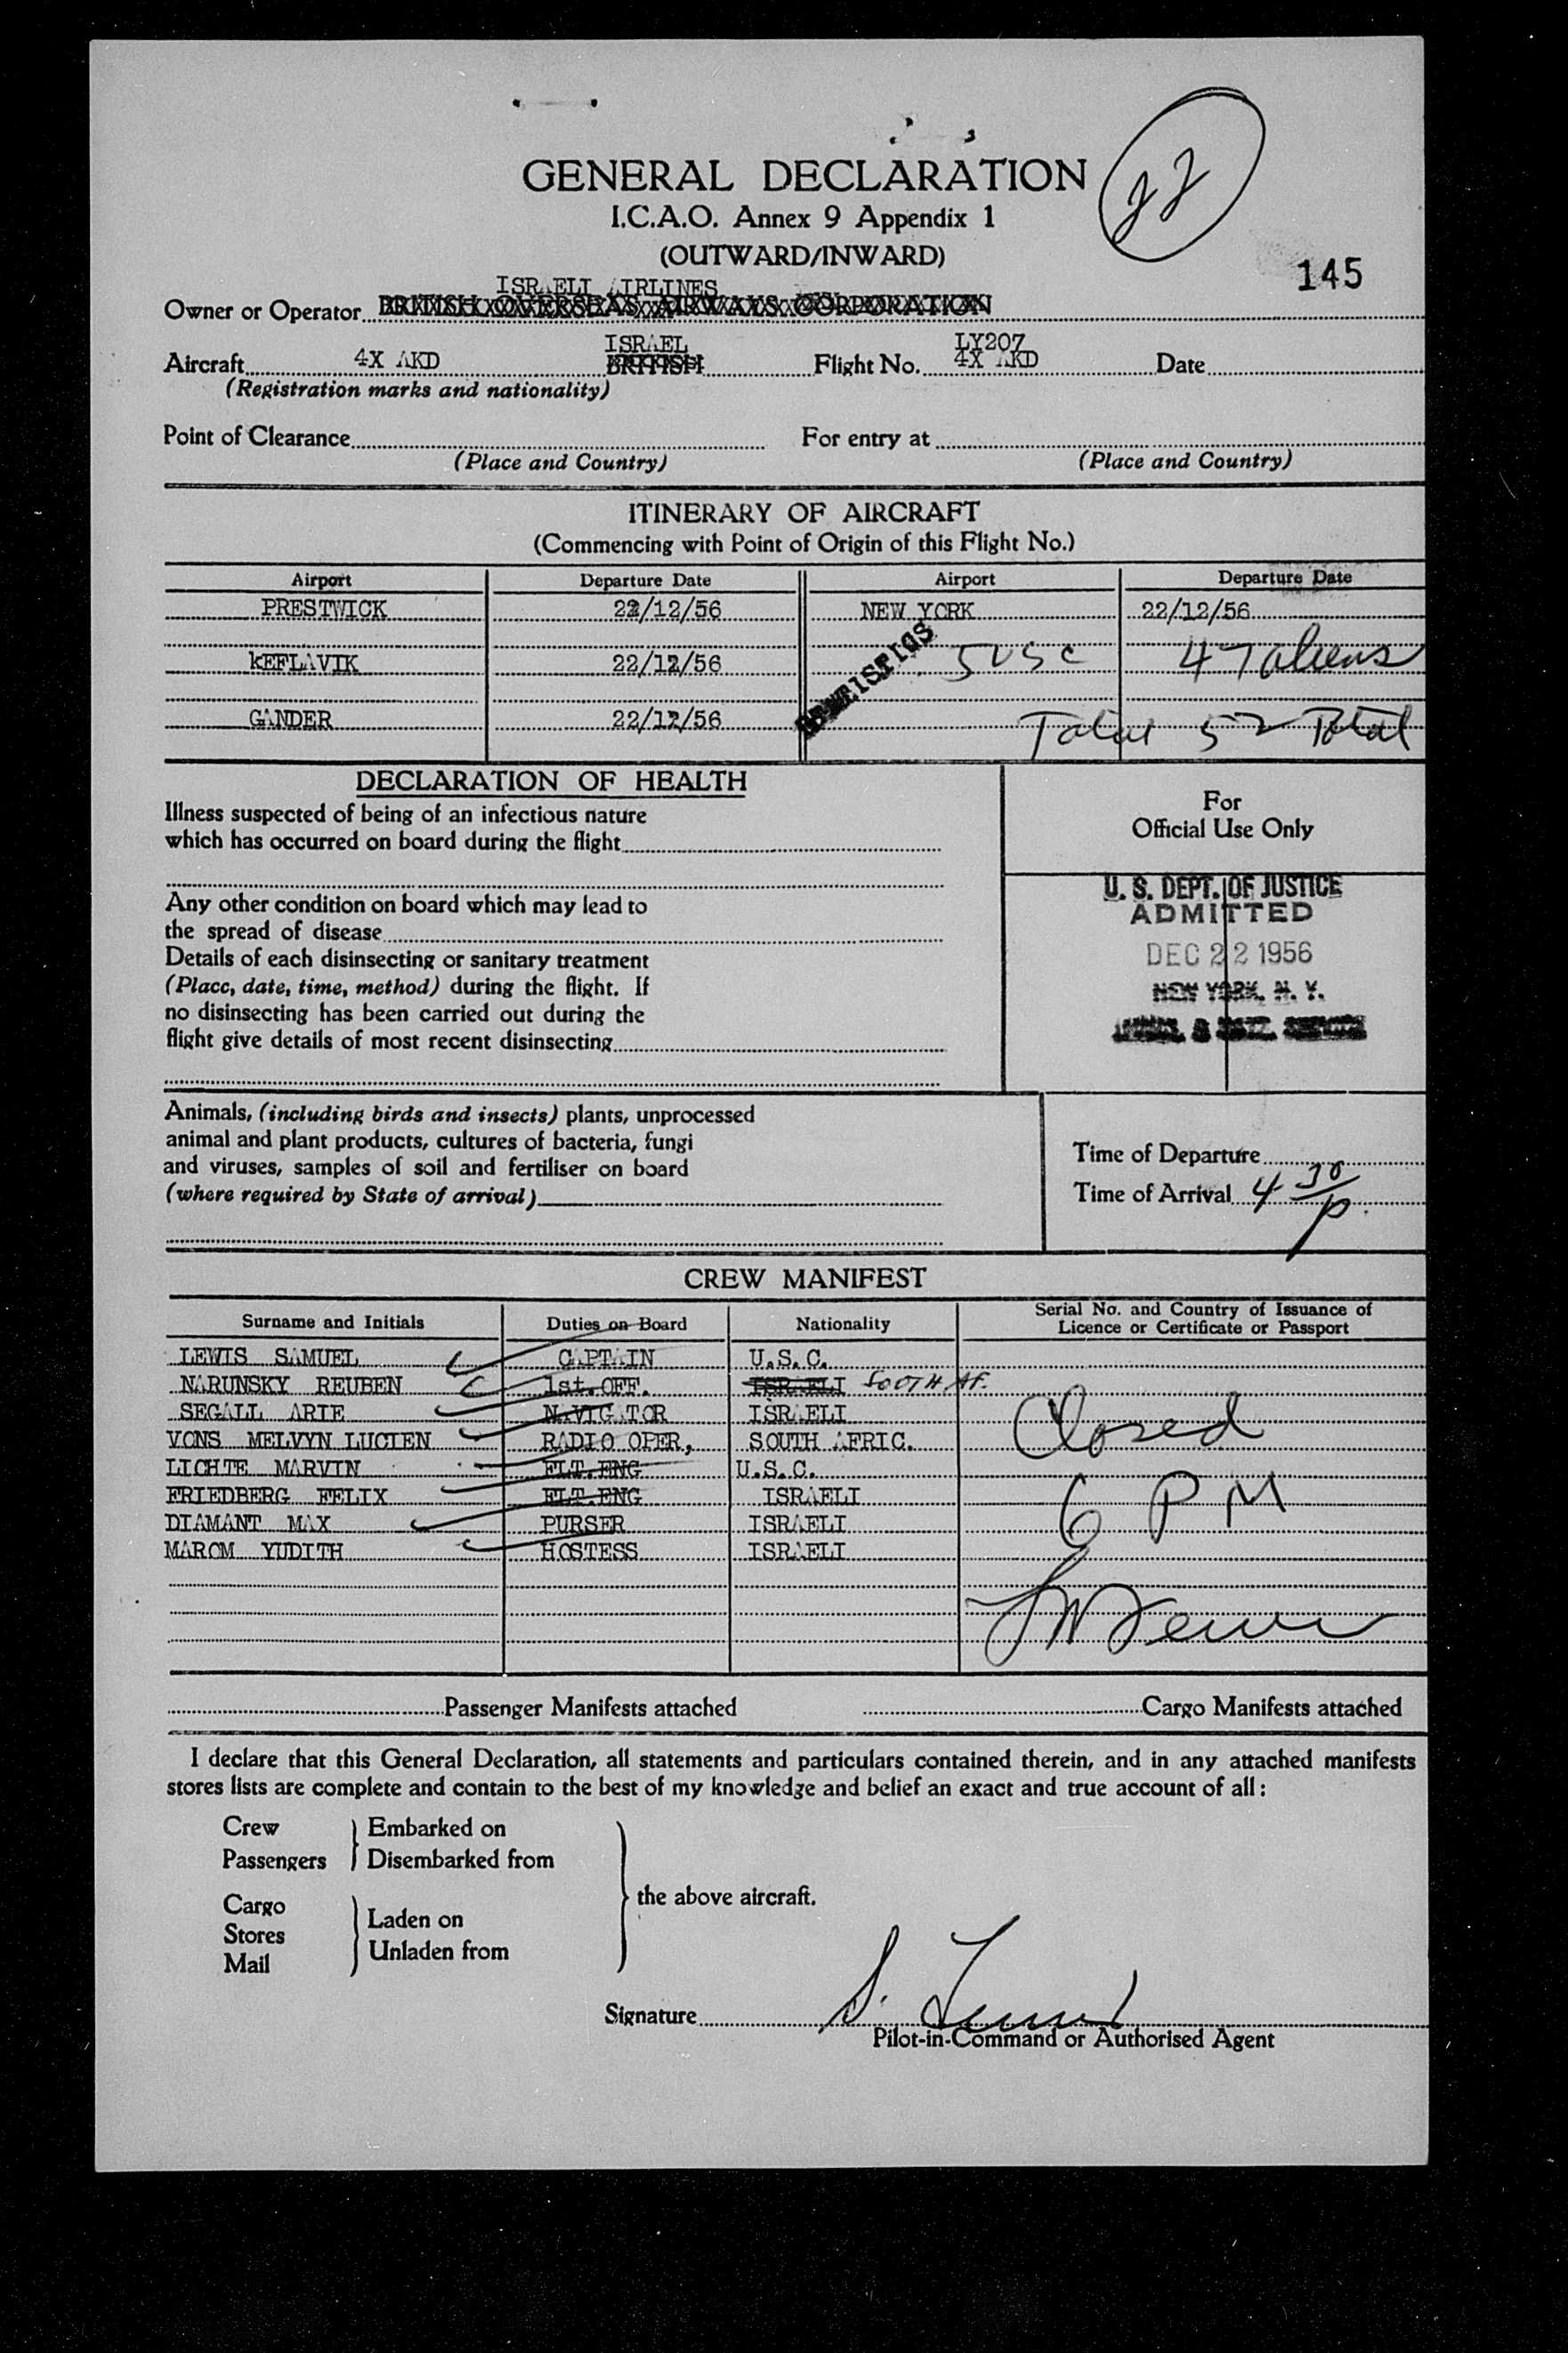 GENERAL DECLARATION
I.C.A.O. Annex 9 Appendix 1
(OUTWARD/INWARD)
145
ISRAELI AIRLINES
Owner or Operator BRITISH OVERSEAS AIRWAYS CORPORATION
ISRAEL LY207
Aircraft 4X AKD BRITISH Flight No. 4X AKD Date
(Registration marks and nationality)
Point of Clearance For entry at
(Place and Country) (Place and Country)
ITINERARY OF AIRCRAFT
(Commencing with Point of Origin of this Flight No.)
Airport Departure Date Airport Departure Date
PRESTWICK 22/12/56 NEW YORK 22/12/56
kEFLAVIK 22/12/56 5 USC 47 aliens
GANDER 22/12/56 Total 52 Total
DECLARATION OF HEALTH
Illness suspected of being of an infectious nature
which has occurred on board during the flight
For
Official Use Only
Any other condition on board which may lead to
the spread of disease
Details of each disinsecting or sanitary treatment
(Place, date, time, method) during the flight. If
no disinsecting has been carried out during the
flight give details of most recent disinsecting
U. S. DEPT. OF JUSTICE
ADMITTED
DEC 22 1956
NEW YORK, N. Y.
Animals, (including birds and insects) plants, unprocessed
animal and plant products, cultures of bacteria, fungi
and viruses, samples of soil and fertiliser on board
(where required by State of arrival)
Time of Departure
Time of Arrival 4 30 p
CREW MANIFEST
Surname and Initials Duties on Board Nationality Serial No. and Country of Issuance of Licence or Certificate or Passport
LEWIS SAMUEL CAPTAIN U.S.C.
NARUNSKY REUBEN 1st. OFF. ISRAELI SOUTH AF.
SEGALL ARIE NAVIGATOR ISRAELI
VONS MELVYN LUCIEN RADIO OPER, SOUTH AFRIC.
LICHTE MARVIN FLT.ENG U.S.C.
FRIEDBERG FELIX FLT.ENG ISRAELI
DIAMANT MAX PURSER ISRAELI
MAROM YUDITH HOSTESS ISRAELI
Closed
6 PM
Passenger Manifests attached Cargo Manifests attached
I declare that this General Declaration, all statements and particulars contained therein, and in any attached manifests
stores lists are complete and contain to the best of my knowledge and belief an exact and true account of all:
Crew Embarked on
Passengers Disembarked from
the above aircraft.
Cargo Laden on
Stores
Mail Unladen from
Signature
Pilot-in-Command or Authorised Agent